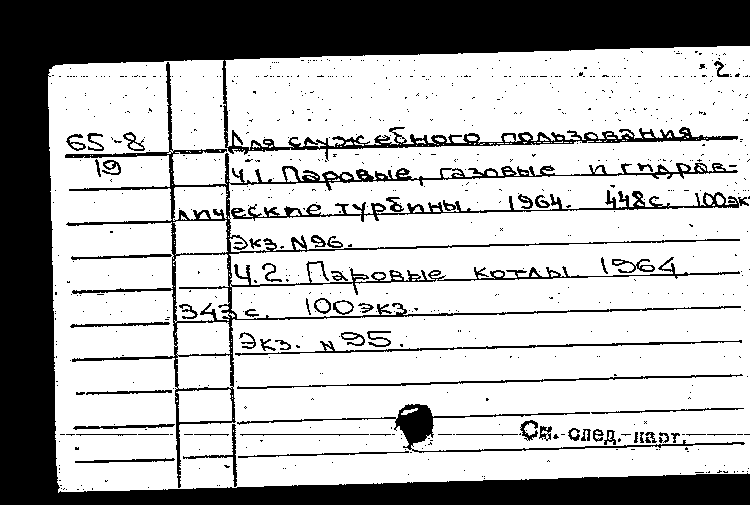 2.
65-8 Для служебного пользования.
19 Ч.1. Паровые, газовые и гидрав-
лические турбины. 1964. 448с. 100эк
Экз. N96.
Ч.2. Паровые котлы. 1964.
343с. 100экз.
Экз. N95.
См. след. карт.